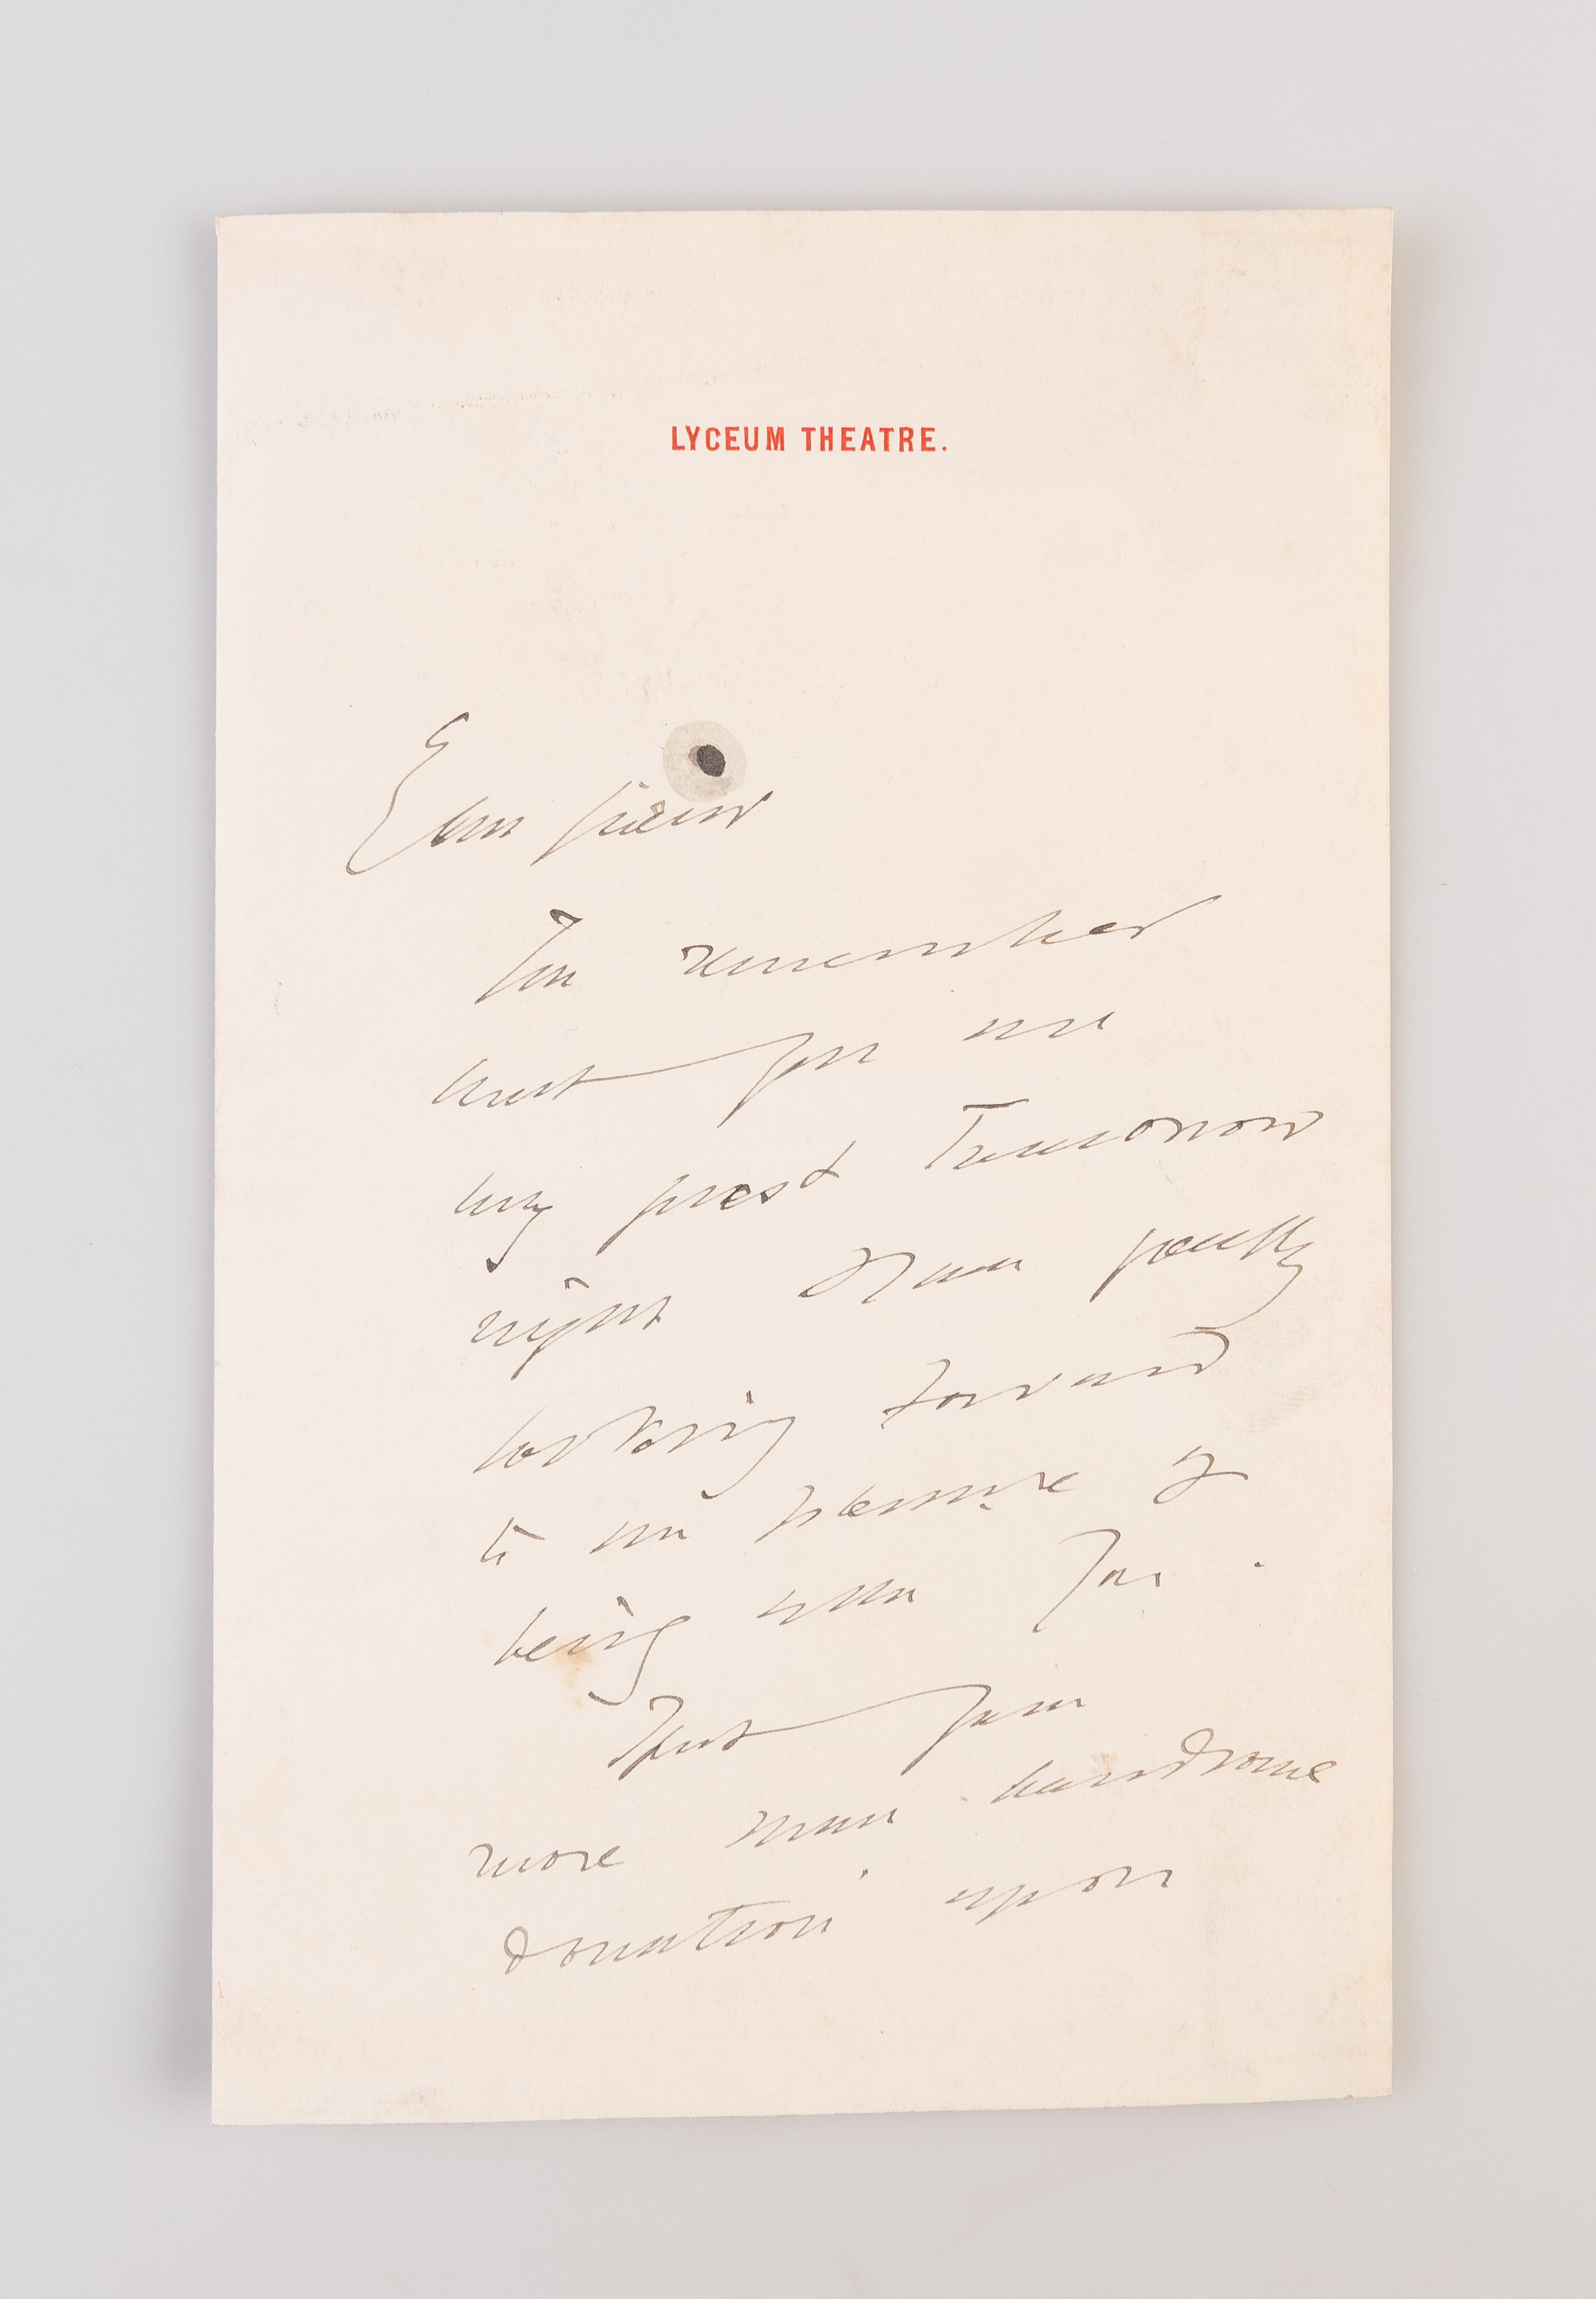 LYCEUM THEATRE.
Dear friend
You remember
that you are
my guest Tomorrow
night & I am greatly
looking forward
to the pleasure of
being with you.
But your
more than handsome
donation upon